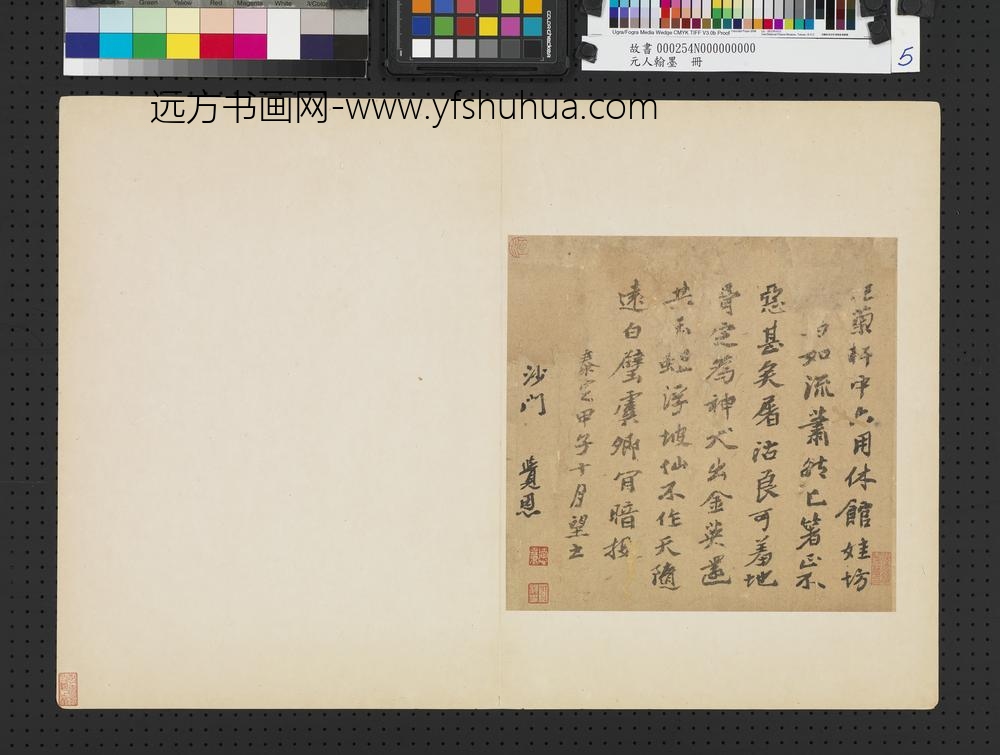 Green Yellow Red Magenta White 3/Color
colorchecker
Ugra/Fogra Media Wedge CMYK TIFF V3.0b Proof
故書 000254N000000000
元人翰墨 冊
5
远方书画网-www.yfshuhua.com
菊軒中六用休館娃坊
如流蕭然已箸正不
惡甚矣屠沽良可羞地
骨定為神犬出金英還
共玉蛆浮坡仙不作天隨
遠白璧虞卿肯暗投
泰定甲子十月望書
沙門
覺恩